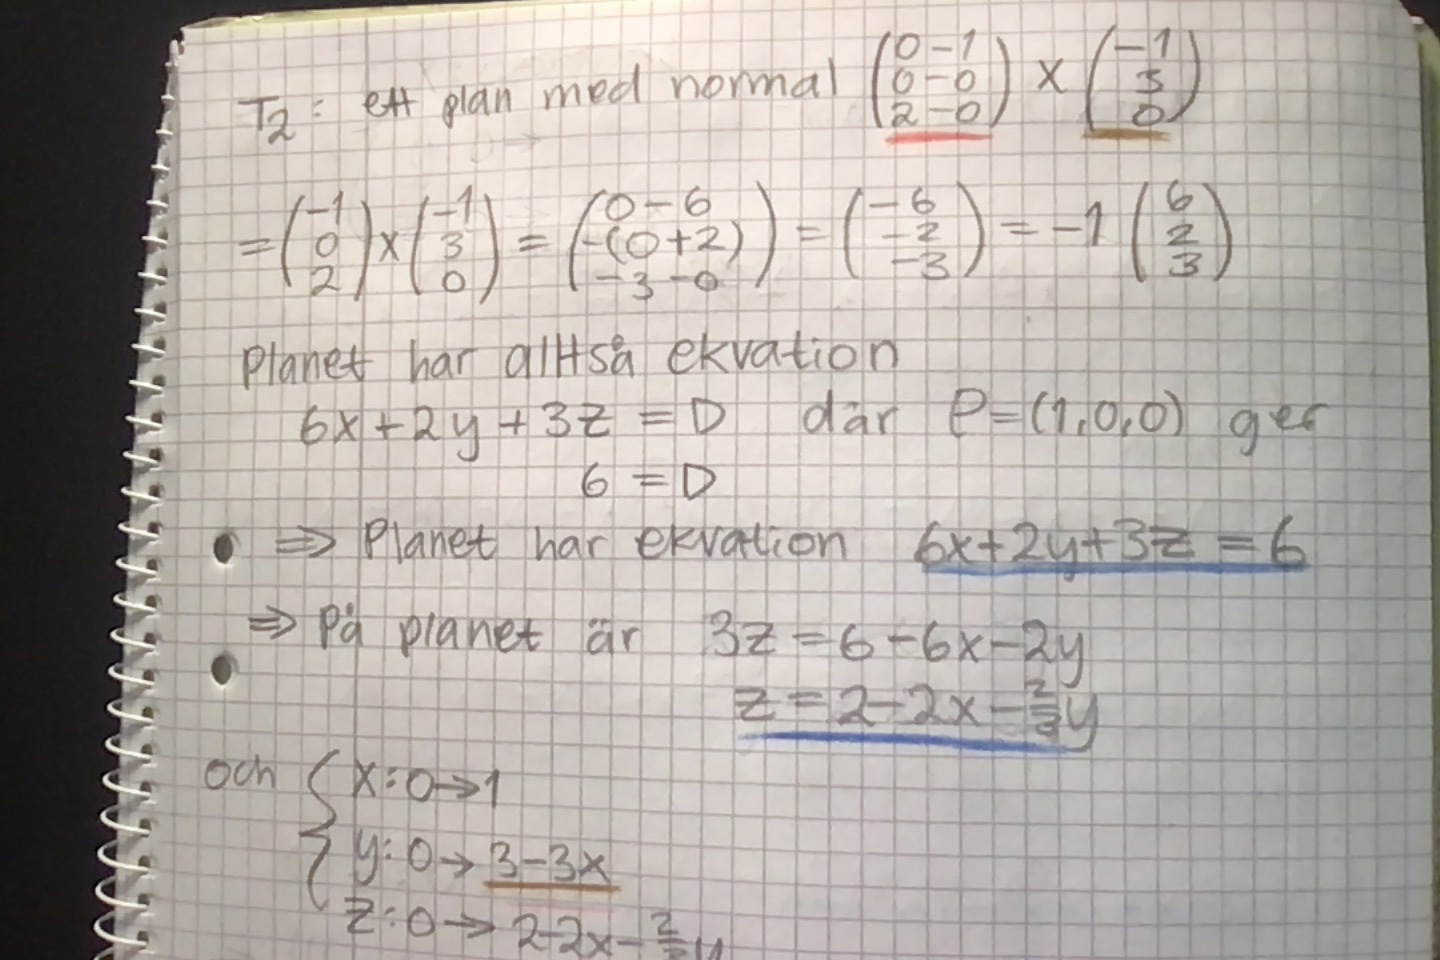 T2: ett plan med normal (0-1 0-0 2-0) × (-1 3 0)
= (-1 0 2) × (-1 3 0) = (0-6 -(0+2) -3-0) = (-6 -2 -3) = -1 (6 2 3)
Planet har alltså ekvation
6x+2y+3z = D där P=(1,0,0) ger
6 = D
⇒ Planet har ekvation 6x+2y+3z = 6
⇒ På planet är 3z = 6-6x-2y
z = 2-2x-2/3y
och { x: 0→1
y: 0→ 3-3x
z: 0→ 2-2x-2/3y